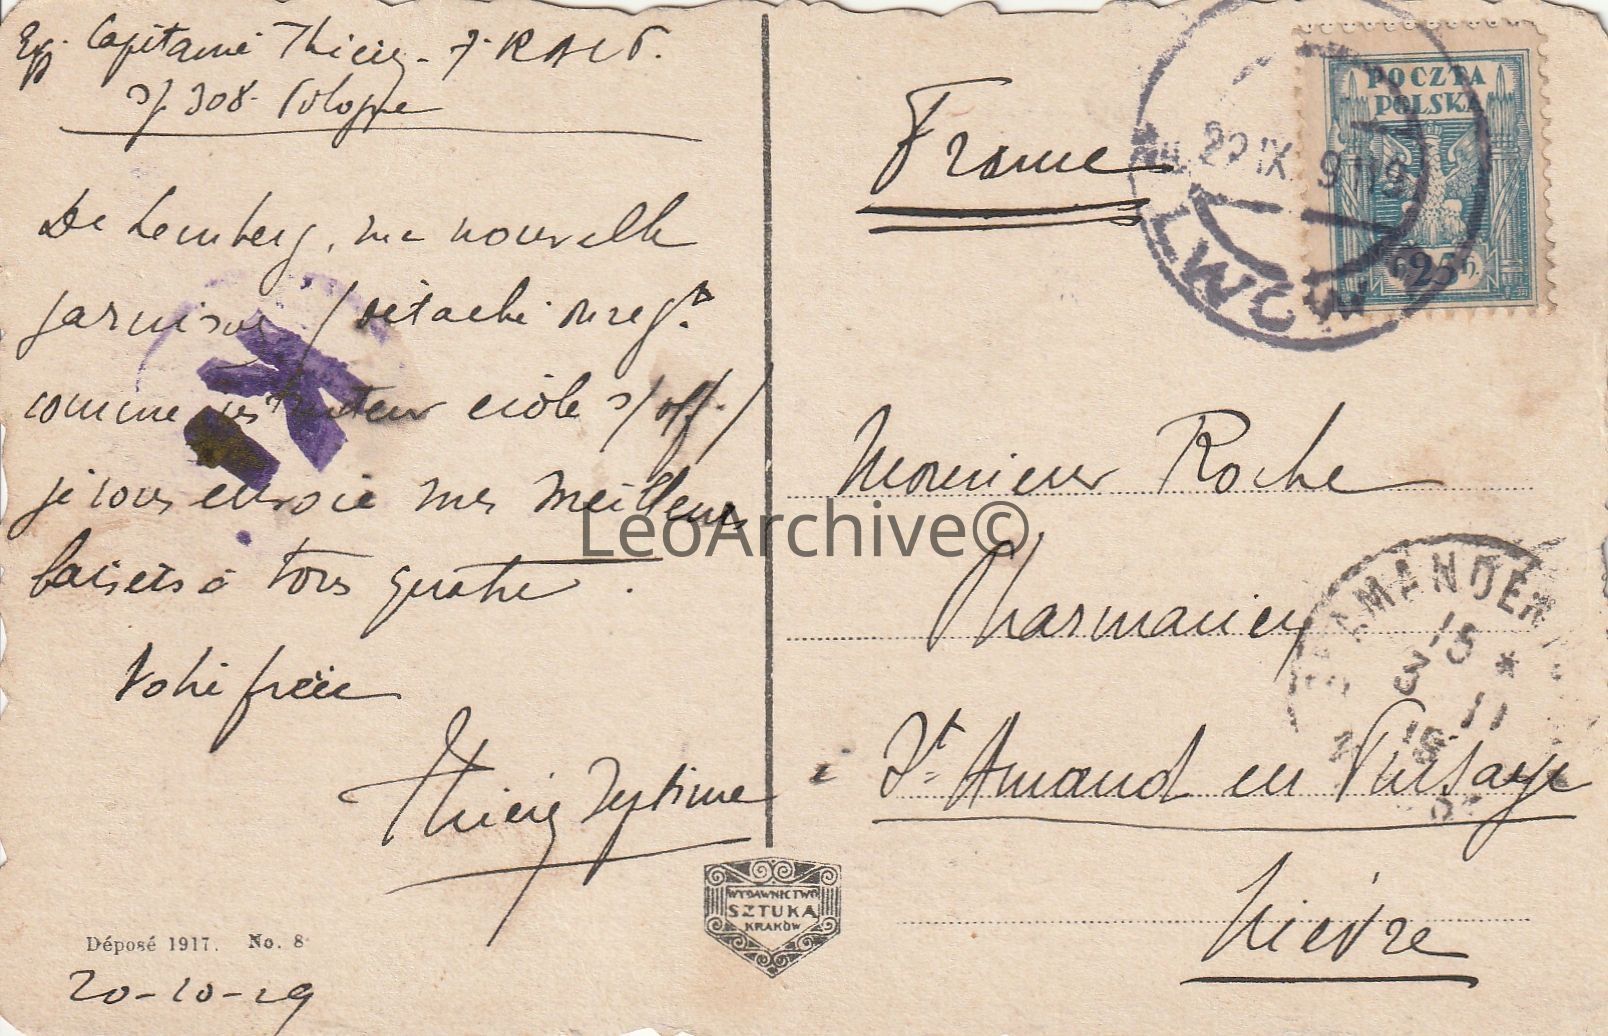 Exp. Capitaine Thierry - 7e RALT.
s/ 308. Pologne
De Lemberg, ma nouvelle
garnison / détaché du regt
comme instructeur école s/off. /
je vous envoie mes meilleurs
baisers à tous quatre.
Votre frère
Thierry
Déposé 1917. No. 8
20-10-19
WYDAWNICTWO
SZTUKA
KRAKÓW
France
POCZTA
POLSKA
25
LWÓW
IX
Monsieur Roche
Pharmacien
St Amand en Puisaye
Nièvre
15
3 *
11
LeoArchive©